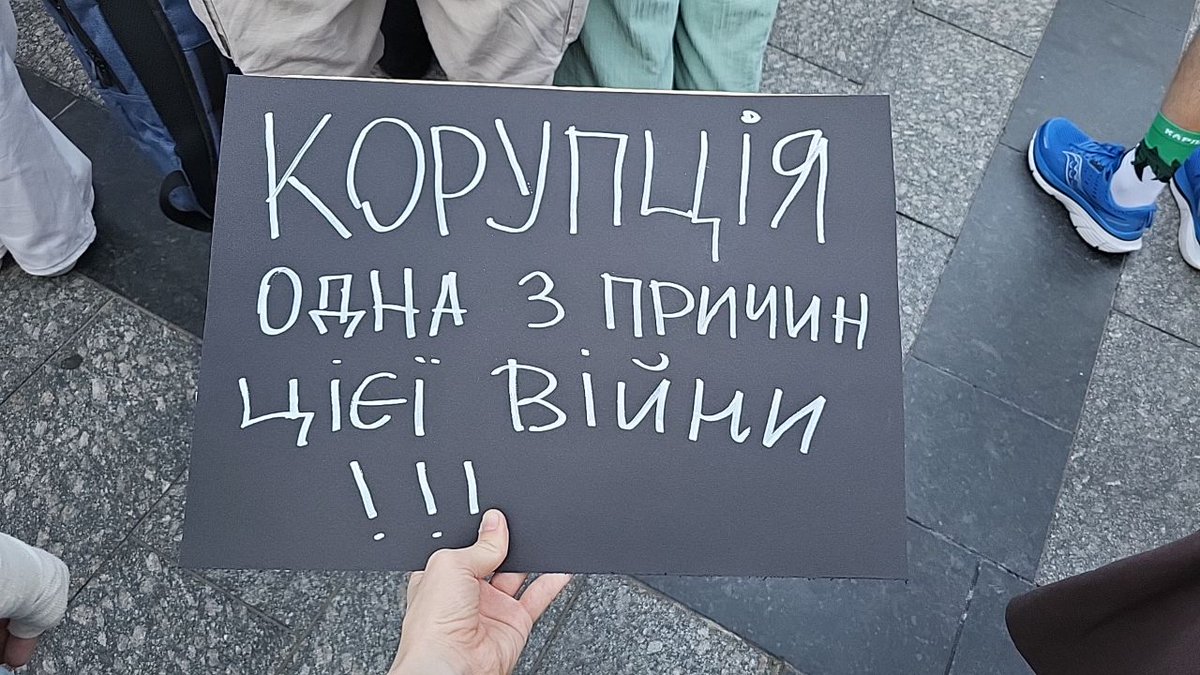 КОРУПЦІЯ
ОДНА З ПРИЧИН
ЦІЄЇ ВІЙНИ
!!!